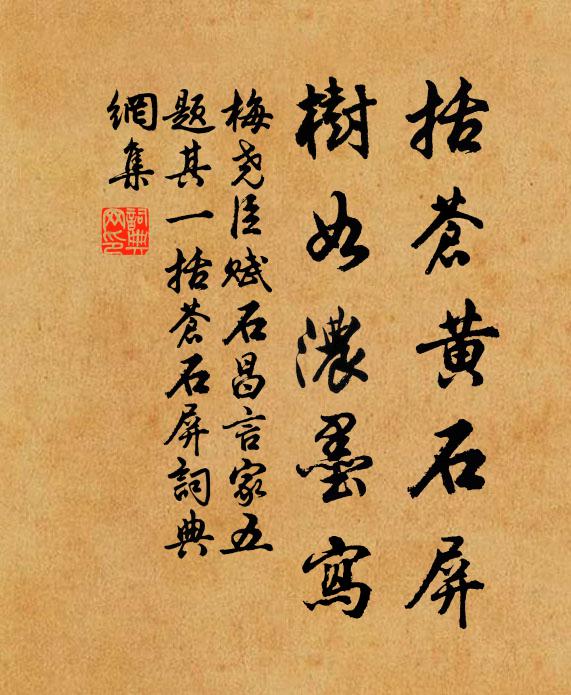 括蒼黄石屏
樹如濃墨寫
梅堯臣賦石昌言家五
題其一括蒼石屏詞典
網集
詞典
网印